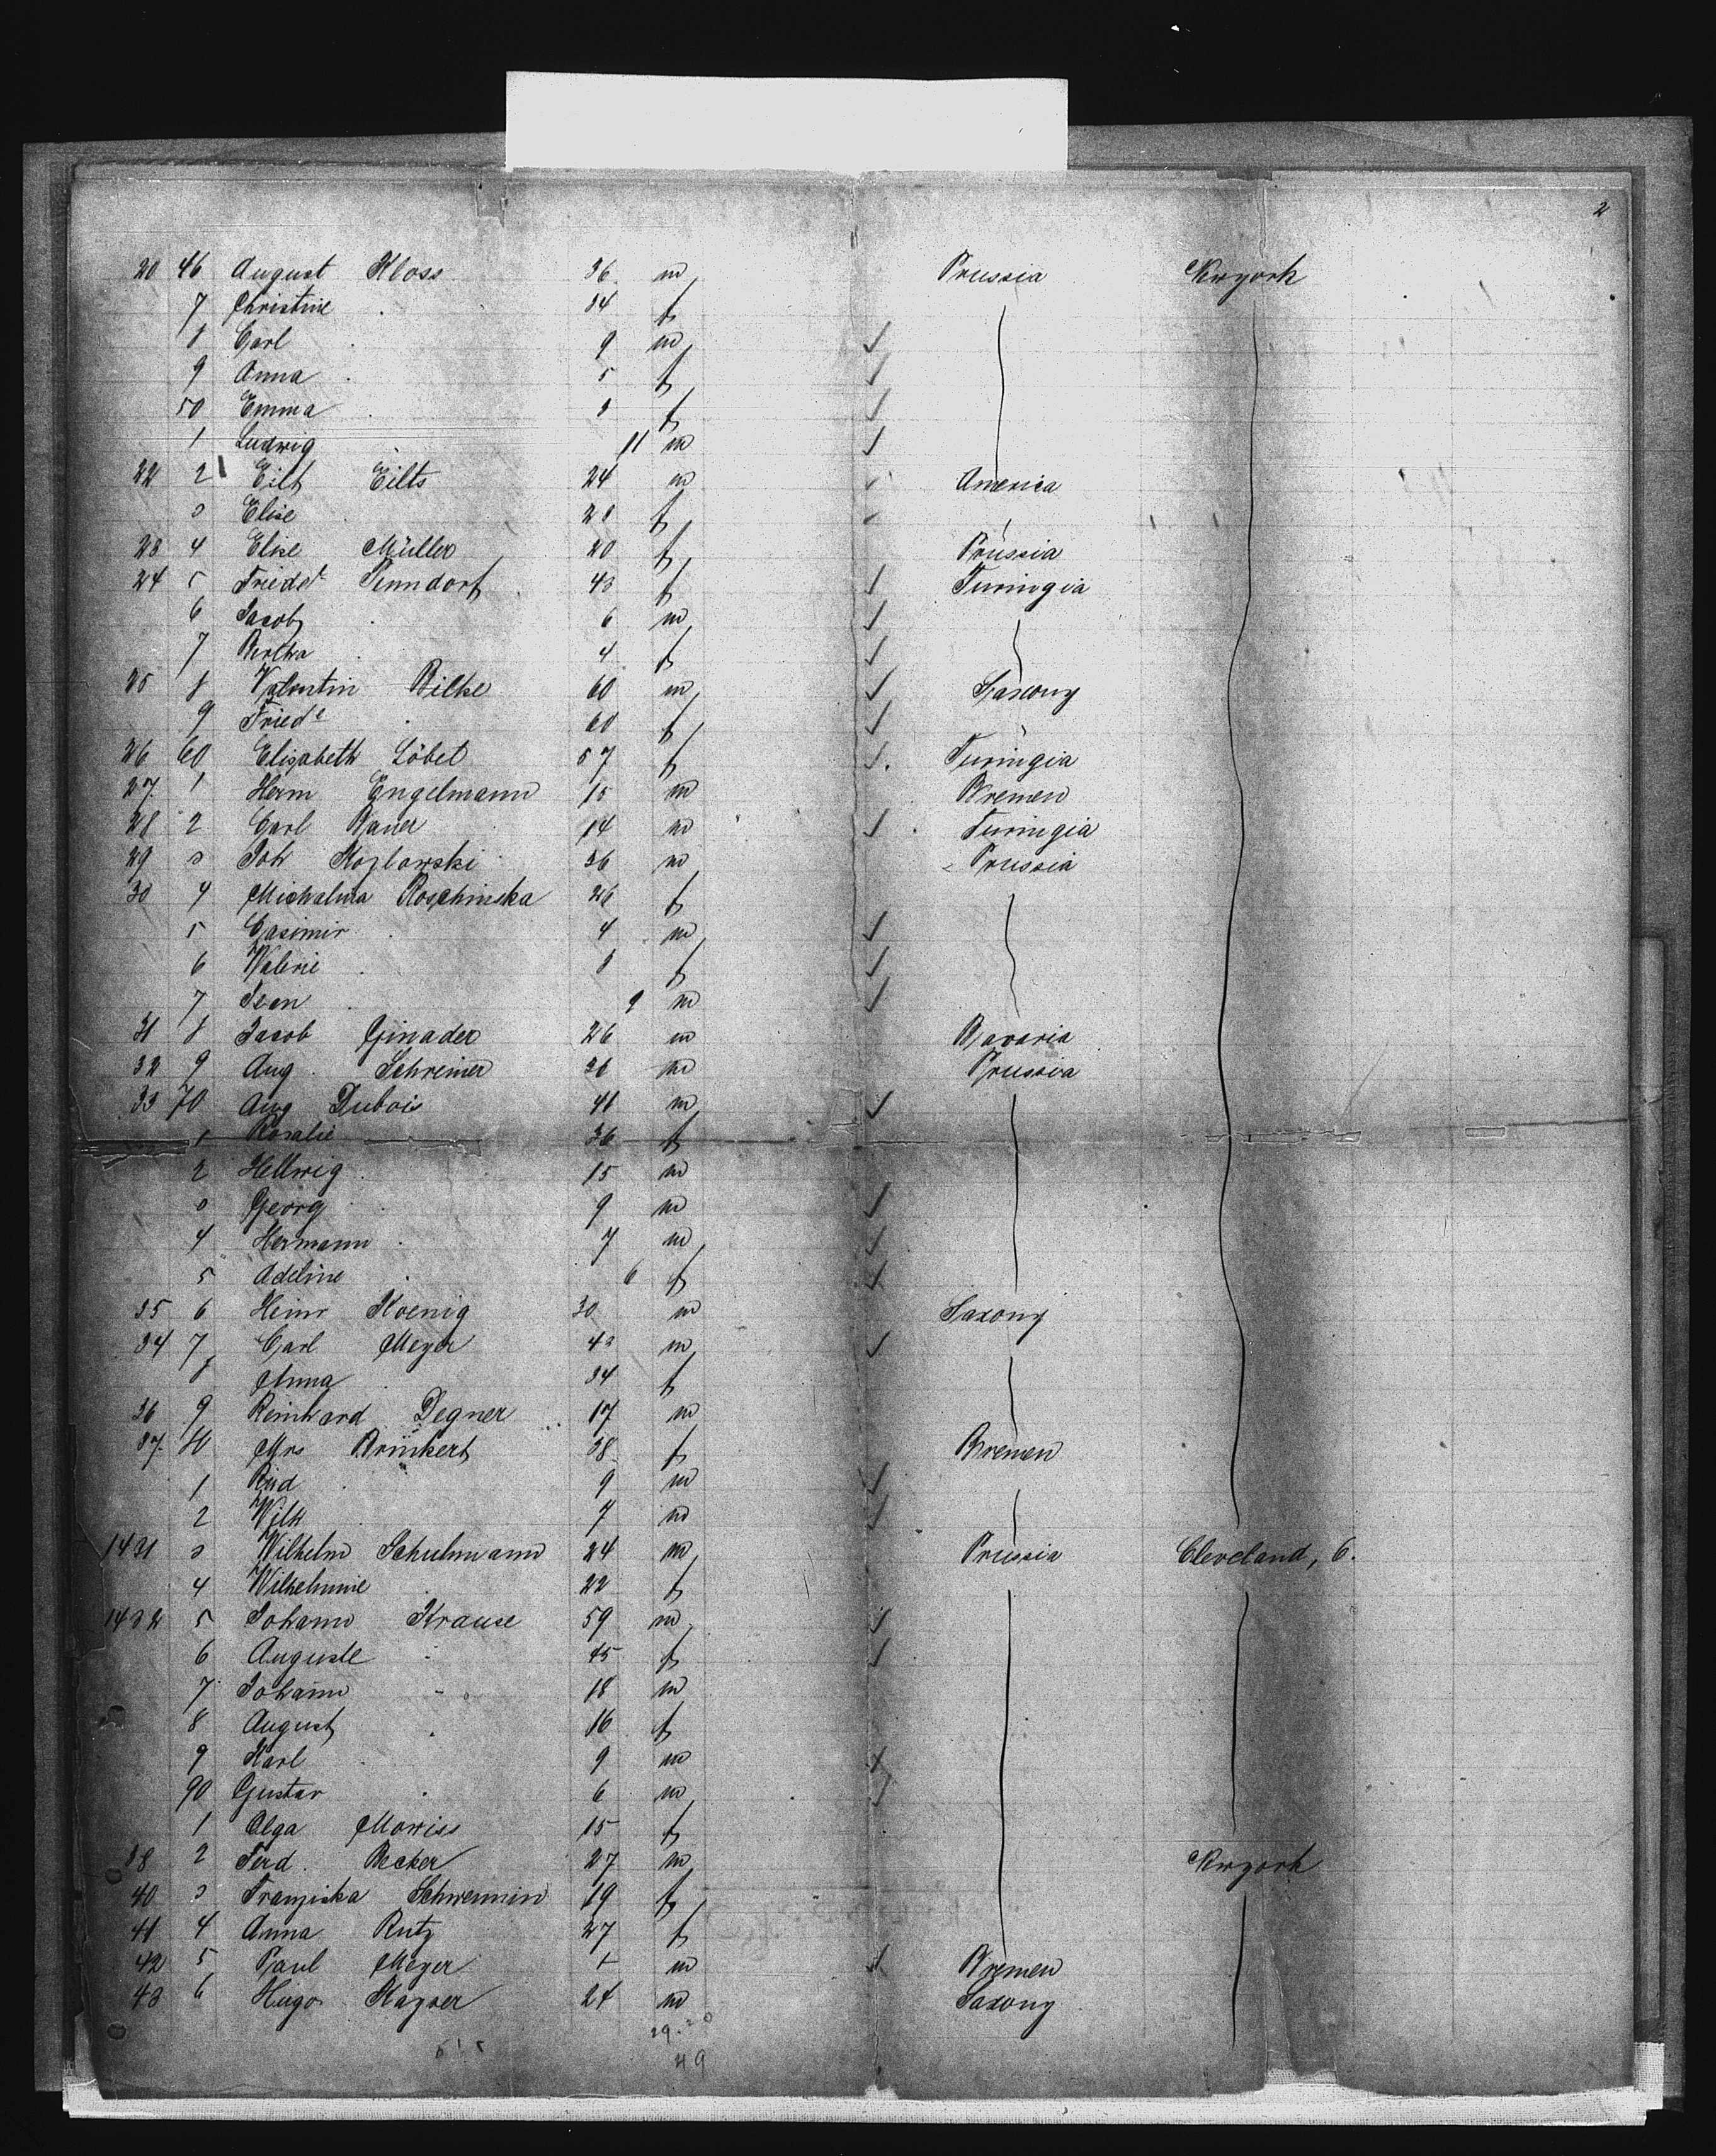 2
20 46 August Kloss 36 m Prussia Newyork
7 Christine 34 f
8 Carl 9 m ✓
9 Anna 5 f ✓
50 Emma 3 f ✓
1 Ludwig 11 m ✓
22 2 Eilt Eilts 24 m ✓ America
3 Elise 28 f ✓
23 4 Elise Müller 20 f Prussia
24 5 Friedke Penndorf 43 f ✓ Turingia
6 Jacob 6 m ✓
7 Bertha 4 f ✓
25 8 Valentin Bilke 60 m ✓ Saxony
9 Friede 60 f ✓
26 60 Elisabeth Löbel 57 f ✓ Turingia
27 1 Herm Engelmann 15 m Bremen
28 2 Carl Bauer 14 m ✓ Turingia
29 3 Joh Kozlowski 36 m Prussia
30 4 Michalina Roschinska 26 f
5 Casimir 4 m ✓
6 Valerie f ✓
7 9 m ✓
31 8 Jacob Ginader 26 m Bavaria
32 9 Aug Schreiner 36 m Prussia
33 70 Aug Dubois 41 m ✓
1 Rosalie 36 f
2 Hellwig 15 m
3 Georg 9 m ✓
4 Hermann 7 m ✓
5 Adeline 6 f ✓
35 6 Heinr Koenig 30 m Saxony
34 7 Carl Meyer 43 m ✓
8 Anna 34 f
36 9 Reinhard Degner 17 m
37 80 Mrs Brinkert 38 f Bremen
1 Rud 9 m ✓
2 Wilh 7 m ✓
1431 3 Wilhelm Schulmann 24 m Prussia Cleveland, O.
4 Wilhelmine 22 f
1432 5 Johann Krause 59 m ✓
6 Auguste 45 f ✓
7 Johann 18 m
8 August 16 f
9 Karl 9 m ✓
90 Gustav 6 m ✓
1 Olga Moriss 15 f
38 2 Ferd. Becker 27 m Newyork
40 3 Franziska Schwemin 19 f
41 4 Anna Rutz 27 f
42 5 Paul Meyer m ✓ Bremen
43 6 Hugo Kayser 24 m Saxony
49